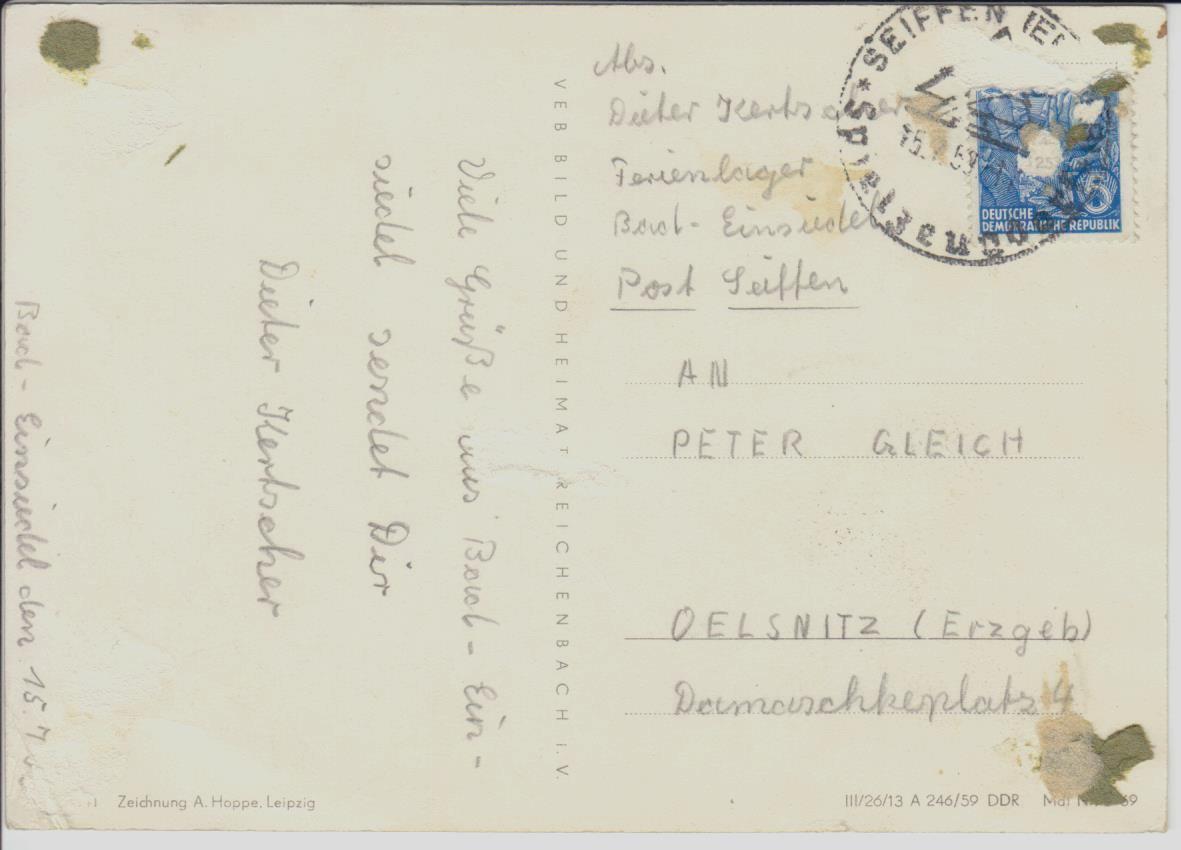 Abs.
Dieter Kertscher
Ferienlager
Bad-Einsiedel
Post Seiffen
AN
PETER GLEICH
OELSNITZ (Erzgeb)
Damaschkeplatz 4
Viele Grüße aus Bad-Ein-
siedel sendet Dir
Dieter Kertscher
Bad-Einsiedel den 15.7.
VEB BILD UND HEIMAT REICHENBACH I. V.
SEIFFEN (ER
Spielzeug
15. 59
DEUTSCHE
DEMOKRATISCHE REPUBLIK
5
Zeichnung A. Hoppe, Leipzig
III/26/13 A 246/59 DDR